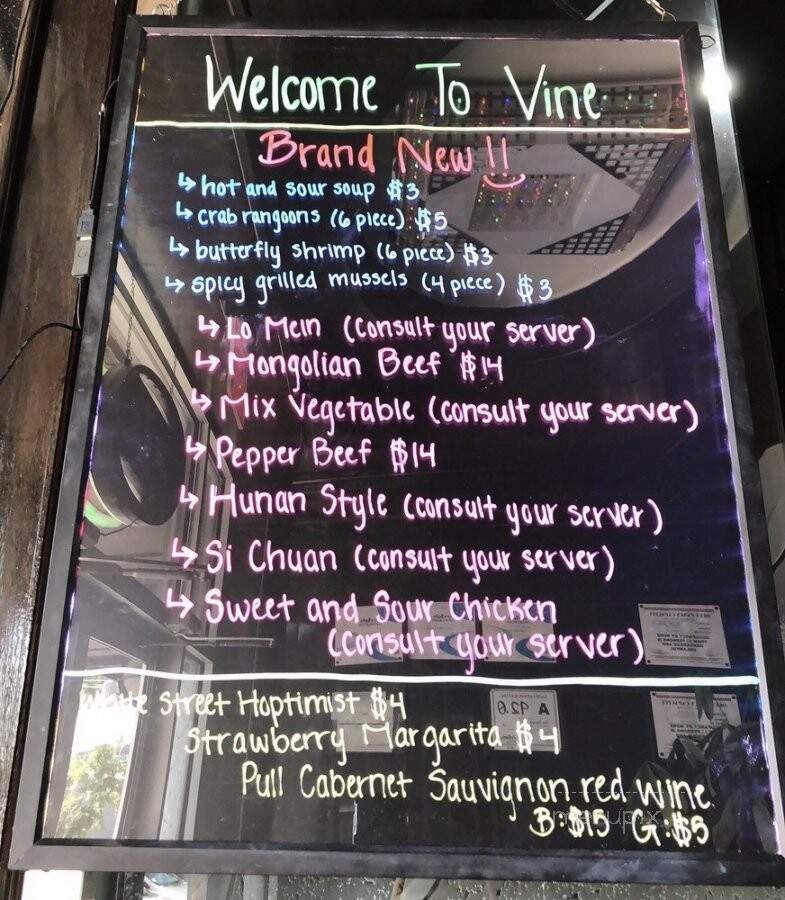 Welcome To Vine
Brand New!!
↳ hot and sour soup $3
↳ crab rangoons (6 piece) $5
↳ butterfly shrimp (6 piece) $3
↳ spicy grilled mussels (4 piece) $3
↳ Lo Mein (consult your server)
↳ Mongolian Beef $14
↳ Mix Vegetable (consult your server)
↳ Pepper Beef $14
↳ Hunan Style (consult your server)
↳ Si Chuan (consult your server)
↳ Sweet and Sour Chicken
(consult your server)
Street Hoptimist $4
Strawberry Margarita $4
Pull Cabernet Sauvignon red wine
B:$15 G:$5
menupix